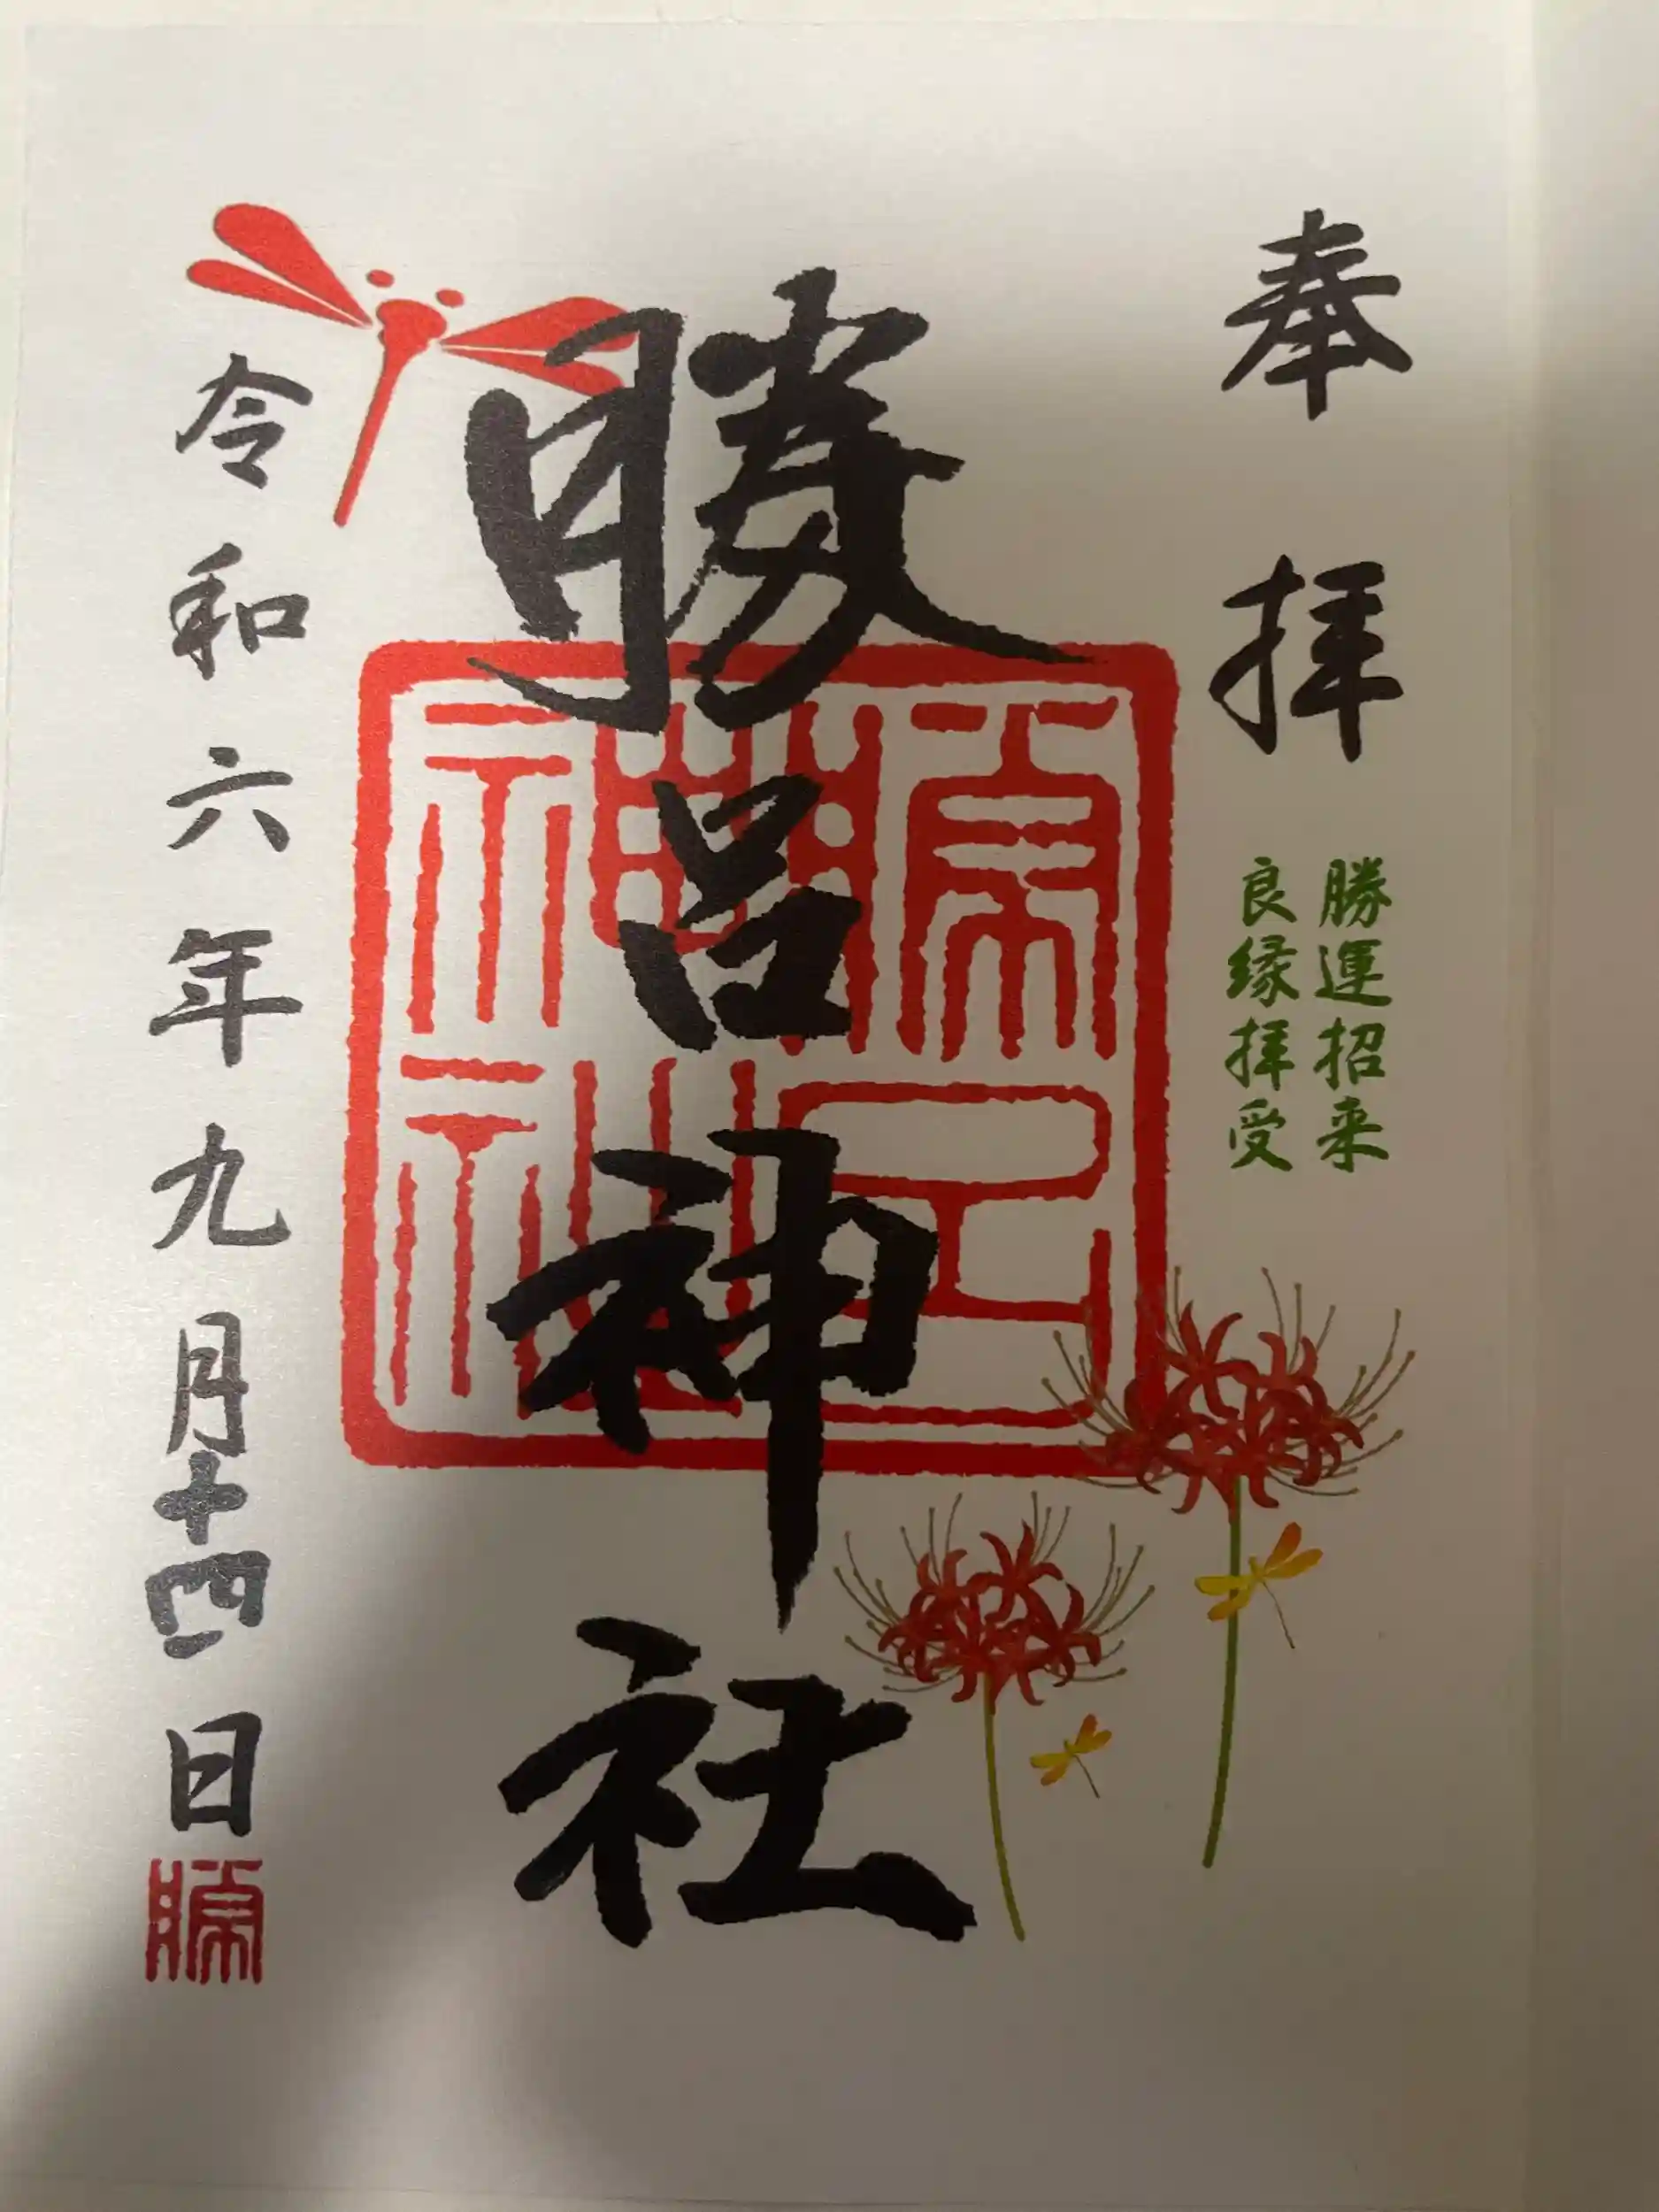 奉拝
勝運招来
良縁拝受
勝呂神社
勝呂神社
令和六年九月十四日
勝